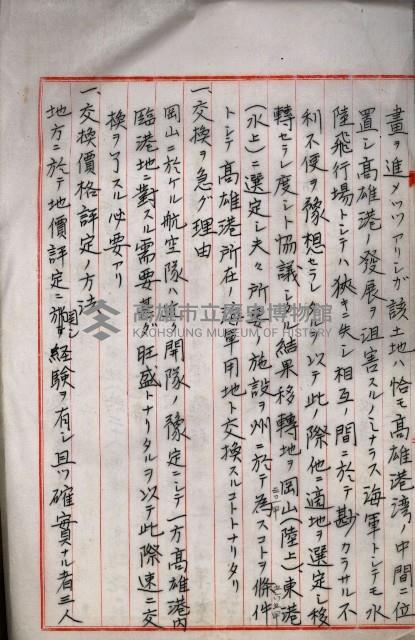 畫ヲ進メツツアリシガ該土地ハ恰モ高雄港湾ノ中間ニ位
置シ高雄港ノ發展ヲ阻害スルノミナラス海軍トシテモ水
陸飛行場トシテハ狹キニ失シ相互ノ間ニ於テ尠クラサル不
利不便ヲ豫想セラレ以テ此ノ際他ニ適地ヲ選定シ移
轉セラレ度シト協議シタル結果移轉地ヲ岡山(陸上)、東港
(水上)ニ選定シ夫々所要ノ施設ヲ州ニ於テ為スコトヲ條件
トシテ高雄港所在ノ海軍用地ト交換スルコトトナリタリ
一、交換ヲ急グ理由
岡山ニ於ケル航空隊ハ 開隊ノ豫定ニシテ一方高雄港内
臨港地ニ對スル需要甚ダ旺盛トナリタルヲ以テ此際速ニ交
換ヲ了スル必要アリ
一、交換價格評定ノ方法
地方ニ於テ地價評定ニ關シ經験ヲ有シ且ツ確實ナル者三人
高雄市立歷史博物館
KAOHSIUNG MUSEUM OF HISTORY